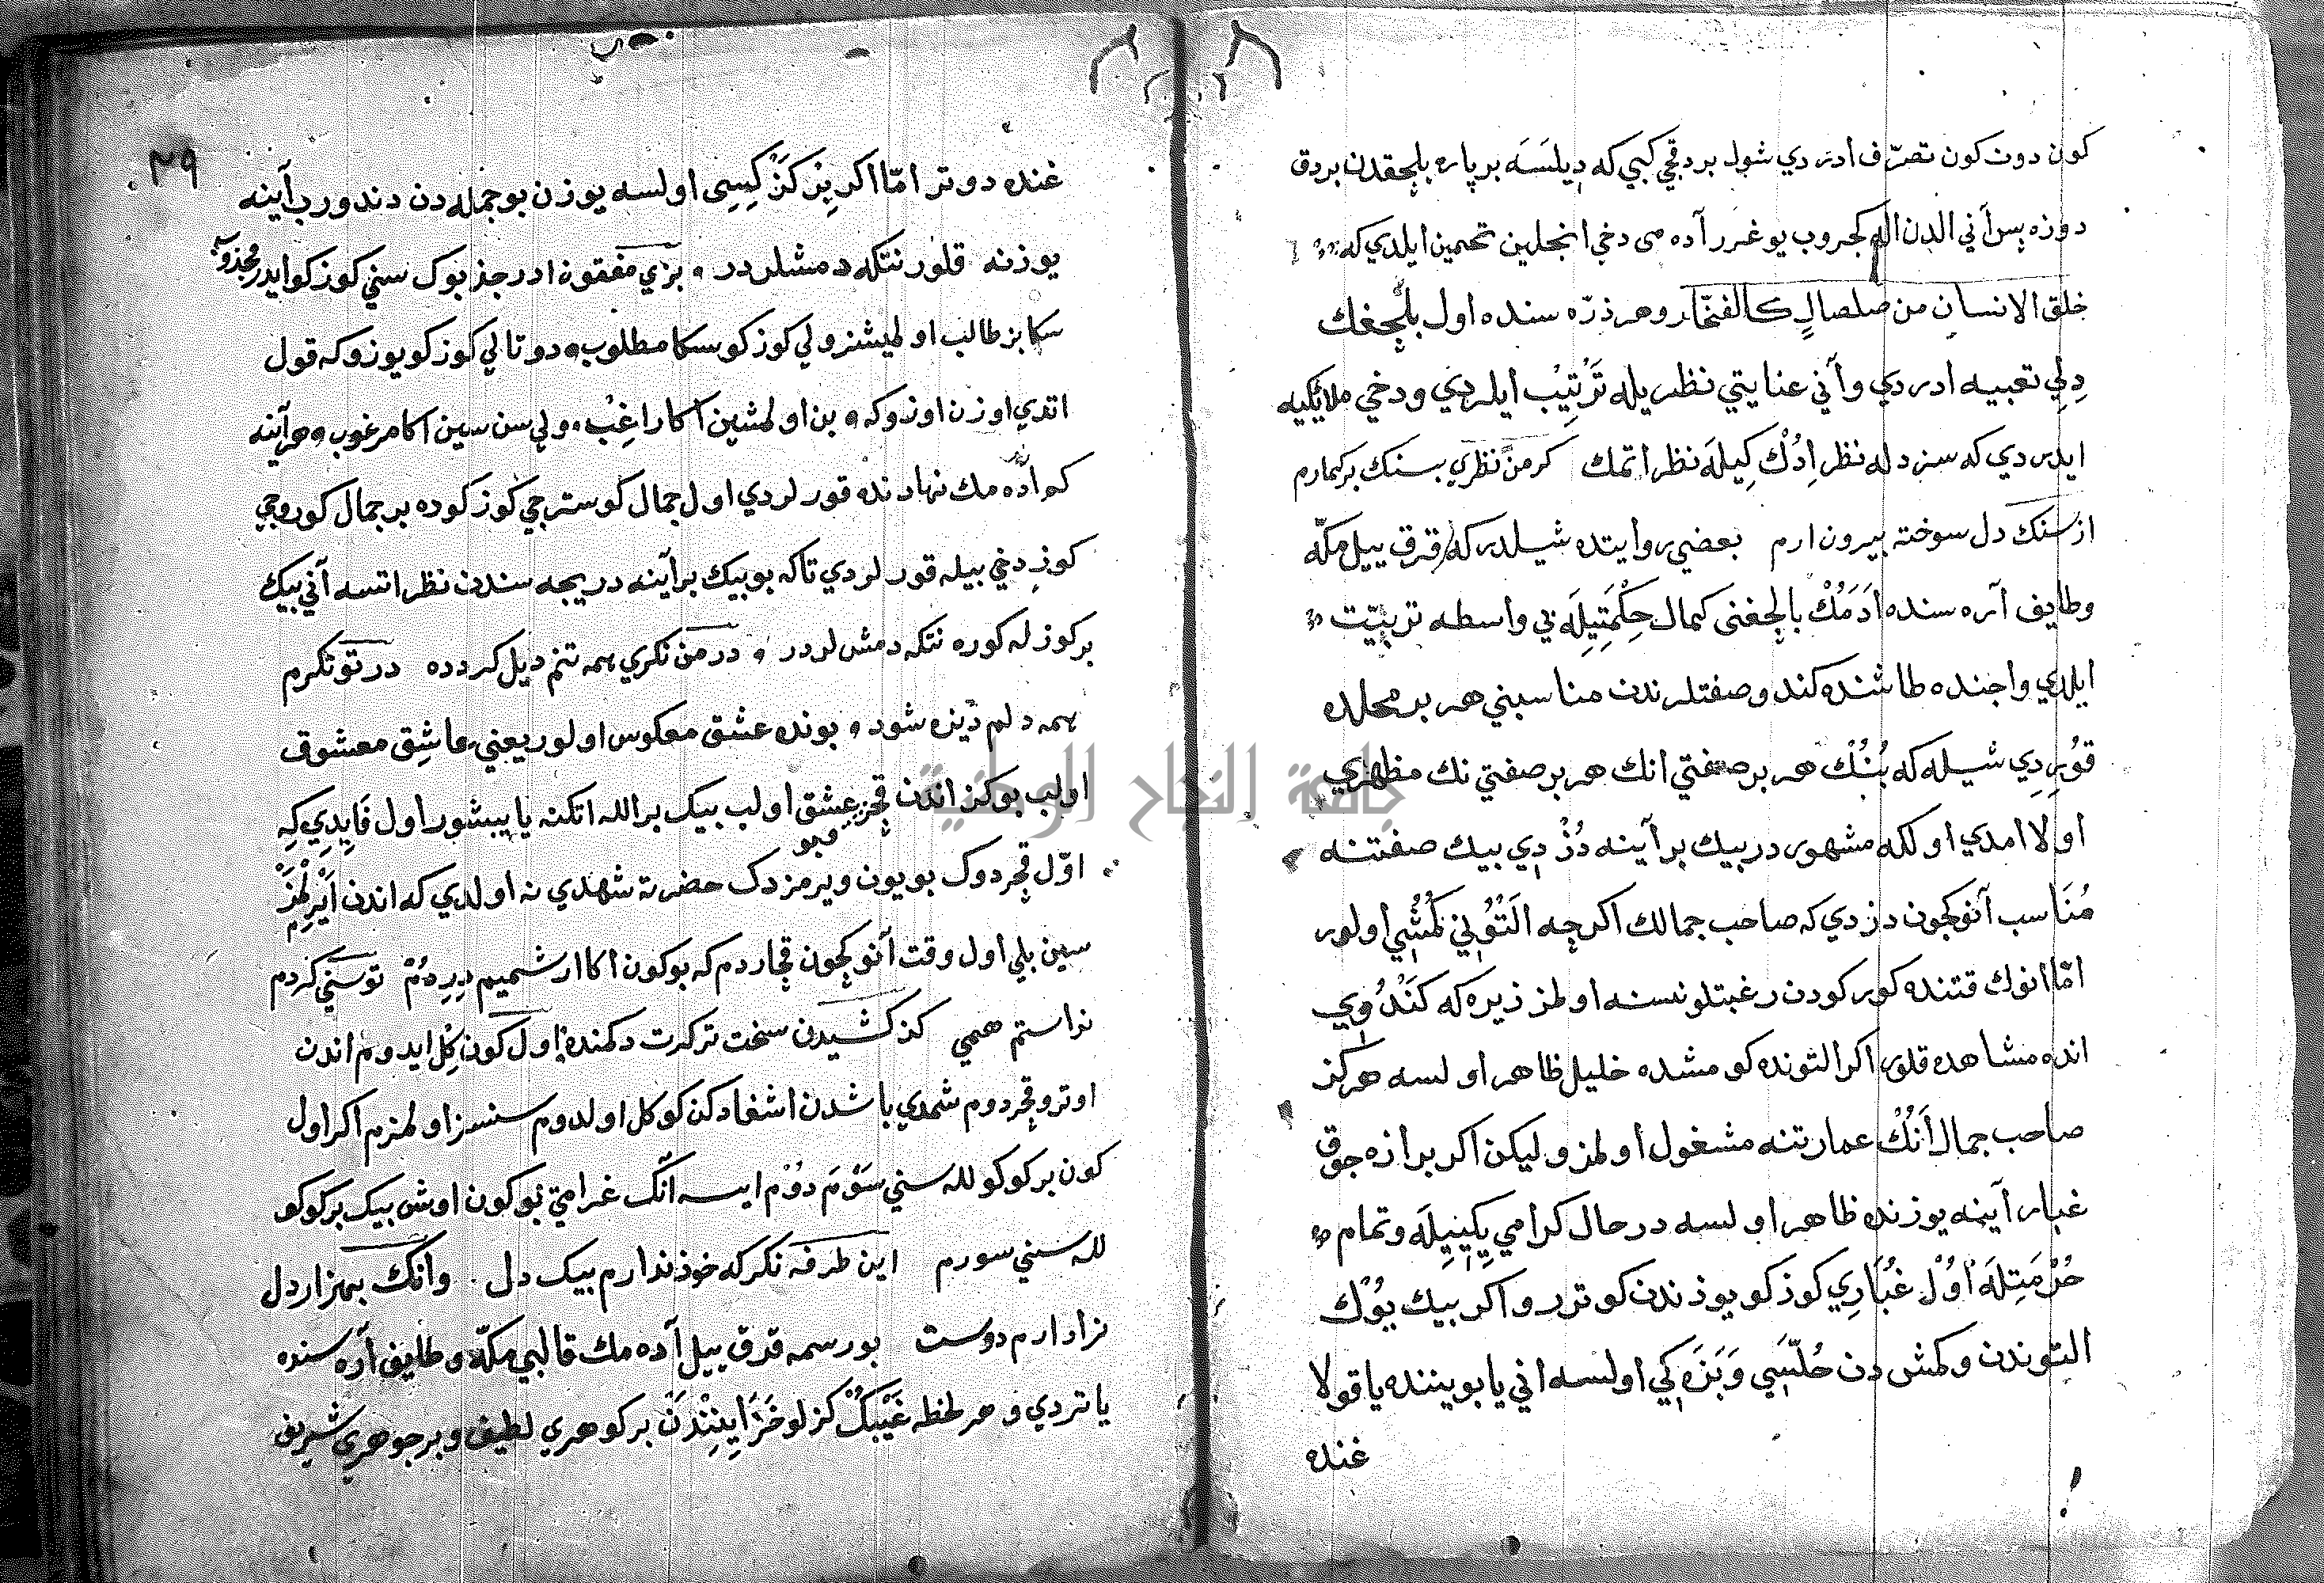 كون دون كون تصرّف ادردي شول بردقجي كبي كه ديلسَه بر پاره بلچقدن بردق
دوزه بس آني الدن اله كجروب يوغرر آده مى دخي انجلين تخمين ايلدي كه
خلق الانسان من صلصالٍ كالفخّار وهر ذرّه سنده اول بلچغك
دِلي تعبيه ادردي وآني عنايتي نظريله تَرْتِيْب ايلردي ودخي ملائكيه
ايدردي كه سزدله نظر اِدُكْ كِيلَه نظر اتمك كر من نظري بسنك بركمارم
از سنك دل سوخته بيرون ارم بعضي روايتده شيلدر كه قرق ييل مكّه
وطايف آره سنده اَدَمُكْ بالچغنى كمال حِكْمَتِيلَه بي واسطه تربيّت
ايلدي واجنده طاشنده كندو صفتلرندن مناسبني هر بر محلده
قوُرِدِي شيله كه بُنُكْ هر بر صفتي انك هر بر صفتي نك مظهري
اولا امدي اولكه مشهور در بيك بر آينه دُزْدِي بيك صفتنه
مُنَاسب آنوكچون دزدي كه صاحب جمالك اكرچه اَلتُوُني كُمْشِي اولور
امّا انوك قتنده كوركودن رغبتلو نسنه اولمز زيره كه كَنْدُويِ
انده مشاهده قلور اكر التونده كومشده خليل ظاهر اولسه هركز
صاحب جمال اَنُكْ عمارتنه مشغول اولمز وليكن اكر بر ازه جق
غبار آينه يوزنده ظاهر اولسه در حال كرامي يِكِينِيلَه وتمام
حُرْمَتِلَه اُوْل غُبَارِي كوزكو يوزندن كوترر واكر بيك يُوْك
التوندن وكمش دن حُلّسِي وَبَزَه كِي اولسه اني يا بويننده يا قولا
غنده
٣٩
غنده دوتر امّا اكر بِزْ كَنْ كِسِى اولسه يوزن بو جمله دن دندورب آينه
يوزنه قلور نتكه دمشلردر بزي مفقوند ادر جذبوك سني كوزكو ايدر مجذوب
سكا بز طالب اولميشز ولي كوزكو سكا مطلوب دوتالي كوزكو يوزوكه قول
اتدي اوزن اوزوكه بن اولمشين اكا راغِبْ ولي سن سين اكا مرغوب هر آينه
كه آده مك نهادنده قورلردي اول جمال كوسترجي كوزكوده بر جمال كوروجي
كوز دخي بيله قورلردي تاكه بو بيك بر آينه دريچه سندن نظر اتسه آني بيك
بر كوزله كوره نتكه دمشلردر در من نكري همه تنم ديل كردده در تو نكرم
همه دلم ديزه شود بونده عشق معكوس اولور يعني عاشِق معشوق
اولب بوكز اندن قجر عشق اولب بيك بر اللـه اتكنه ياپيشور اول قَايِدِي كِه
قجو
اوّل قچردوك بويون ويرمزدك حضرته شهدي نه اولدي كه اندن اَيْرِلْمَزْ
سين بلي اول وقت آنوكچون قچاردم كه بوكون اكا ارشميم دِرِدُمْ توسني كردم
نراستم همي كز كشيدن سخت تركرت دكمنده اول كون كِل ايدوم اندن
اوترو قچردوم شمدي باشدن اشغادكن كوكل اولدوم سنسز اولمزم اكر اول
كون بر كوكولله سني سَوْمَ دوُمْ ايسه اَنُكْ غرامتي بوكون اوش بيك بر كوكو
لله سني سورم اين طرفه نكر كه خوذ ندارم بيك دل وانكك بهزار دل
نرا دارم دوست بو رسمه قرق ييل آده مك قالبي مكّه وطايف آره سنده
ياتردي وهر لحظه غَيْبِكْ كزلو خَزَاينِنْدَنْ بر كوهري لطيف وبر جوهري شريف
جامعة النجاح الوطنية